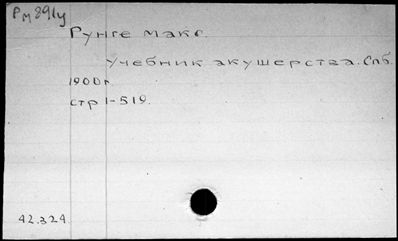 РМ 891у
Рунге Макс.
Учебник акушерства. Спб.
1900г.
стр 1-519.
42.324